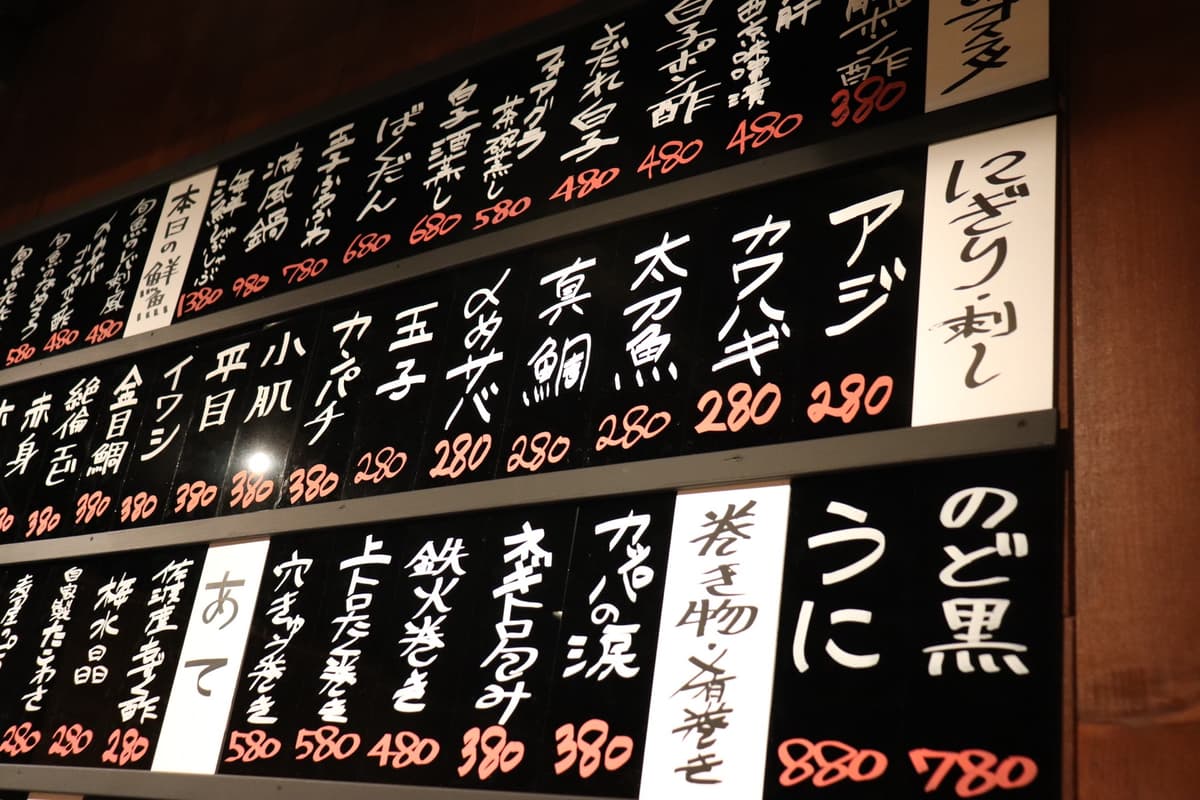 オススメ
ポン酢
380
肝
西京味噌漬
480
白子ポン酢
480
よだれ白子
480
フォアグラ
茶碗蒸し
580
白子酒蒸し
680
ばくだん
680
玉子ふわふわ
780
満風鍋
980
海鮮しゃぶしゃぶ
1380
本日の鮮魚
480
480
580
にぎり・刺し
アジ
280
カワハギ
280
太刀魚
280
真鯛
280
〆めサバ
280
玉子
280
カンパチ
380
小肌
380
平目
380
イワシ
380
金目鯛
380
絶倫エビ
380
赤身
のど黒
780
うに
880
巻き物・〆肴巻き
カッパの涙
380
ネギトロ包み
380
鉄火巻き
480
上トロたく巻き
580
穴きゅう巻き
580
あて
佐渡産もずく酢
280
梅水晶
280
自家製たこわさ
280